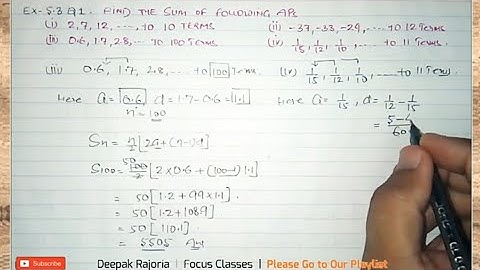 Ex-5.3 Q1. FIND THE SUM OF FOLLOWING APs
(i) 2, 7, 12, ....., to 10 TERMS
(ii) -37, -33, -29, ..... to 12 TERMS
(iii) 0.6, 1.7, 2.8, ... to 100 TERMS
(iv) 1/15, 1/12, 1/10, ..... to 11 TERMS.
(iii) 0.6, 1.7, 2.8, ..... to 100 TERMS.
Here a = 0.6, d = 1.7-0.6 = 1.1
n = 100
Sn = n/2 [2a + (n-1)d]
S100 = 100/2 50 [2 × 0.6 + (100-1) 1.1]
= 50 [1.2 + 99×1.1]
= 50 [1.2 + 108.9]
= 50 [110.1]
= 5505 Ans
(iv) 1/15, 1/12, 1/10, ..... to 11 TERM.
Here a = 1/15, d = 1/12 - 1/15
= 5-4/60
Subscribe
Deepak Rajoria | Focus Classes | Please Go to Our PlayList